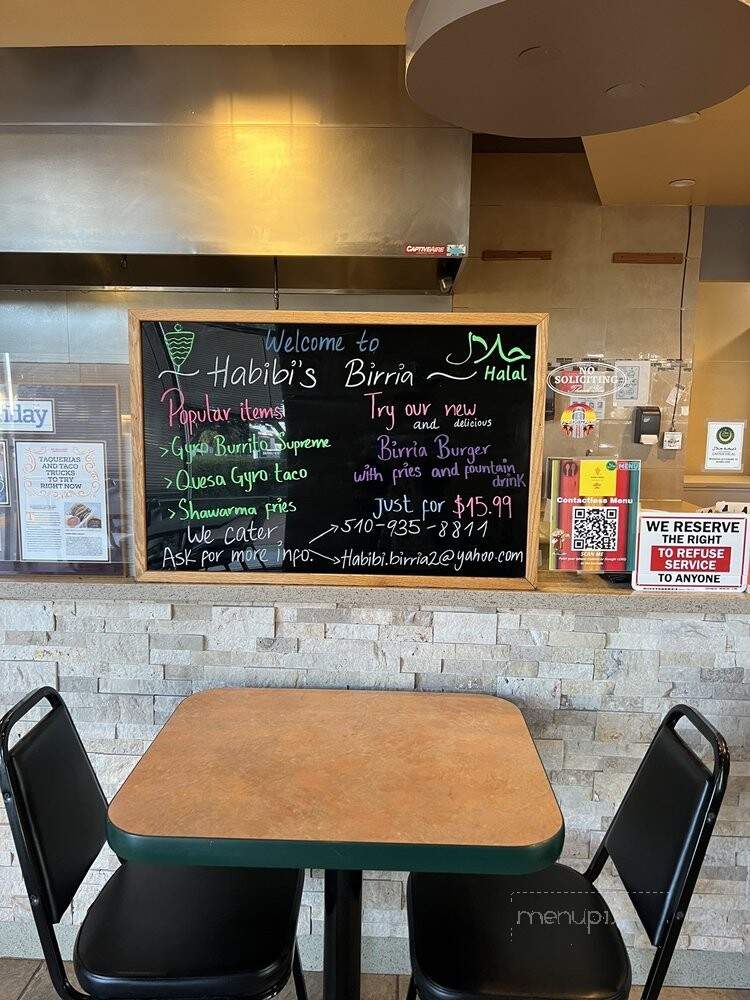 CAPTIVEAIRE
Welcome to
حلال
~ Habibi's Birria ~
Halal
Popular items
> Gyro Burrito Supreme
> Quesa Gyro taco
> Shawarma fries
Try our new
and delicious
Birria Burger
with fries and fountain
drink
Just for $15.99
We cater
Ask for more info
510-935-8811
Habibi.birria2@yahoo.com
day
TAQUERIAS
AND TACO
TRUCKS
TO TRY
RIGHT NOW
NO
SOLICITING
MENU
Contactless Menu
SCAN ME
WE RESERVE
THE RIGHT
TO REFUSE
SERVICE
TO ANYONE